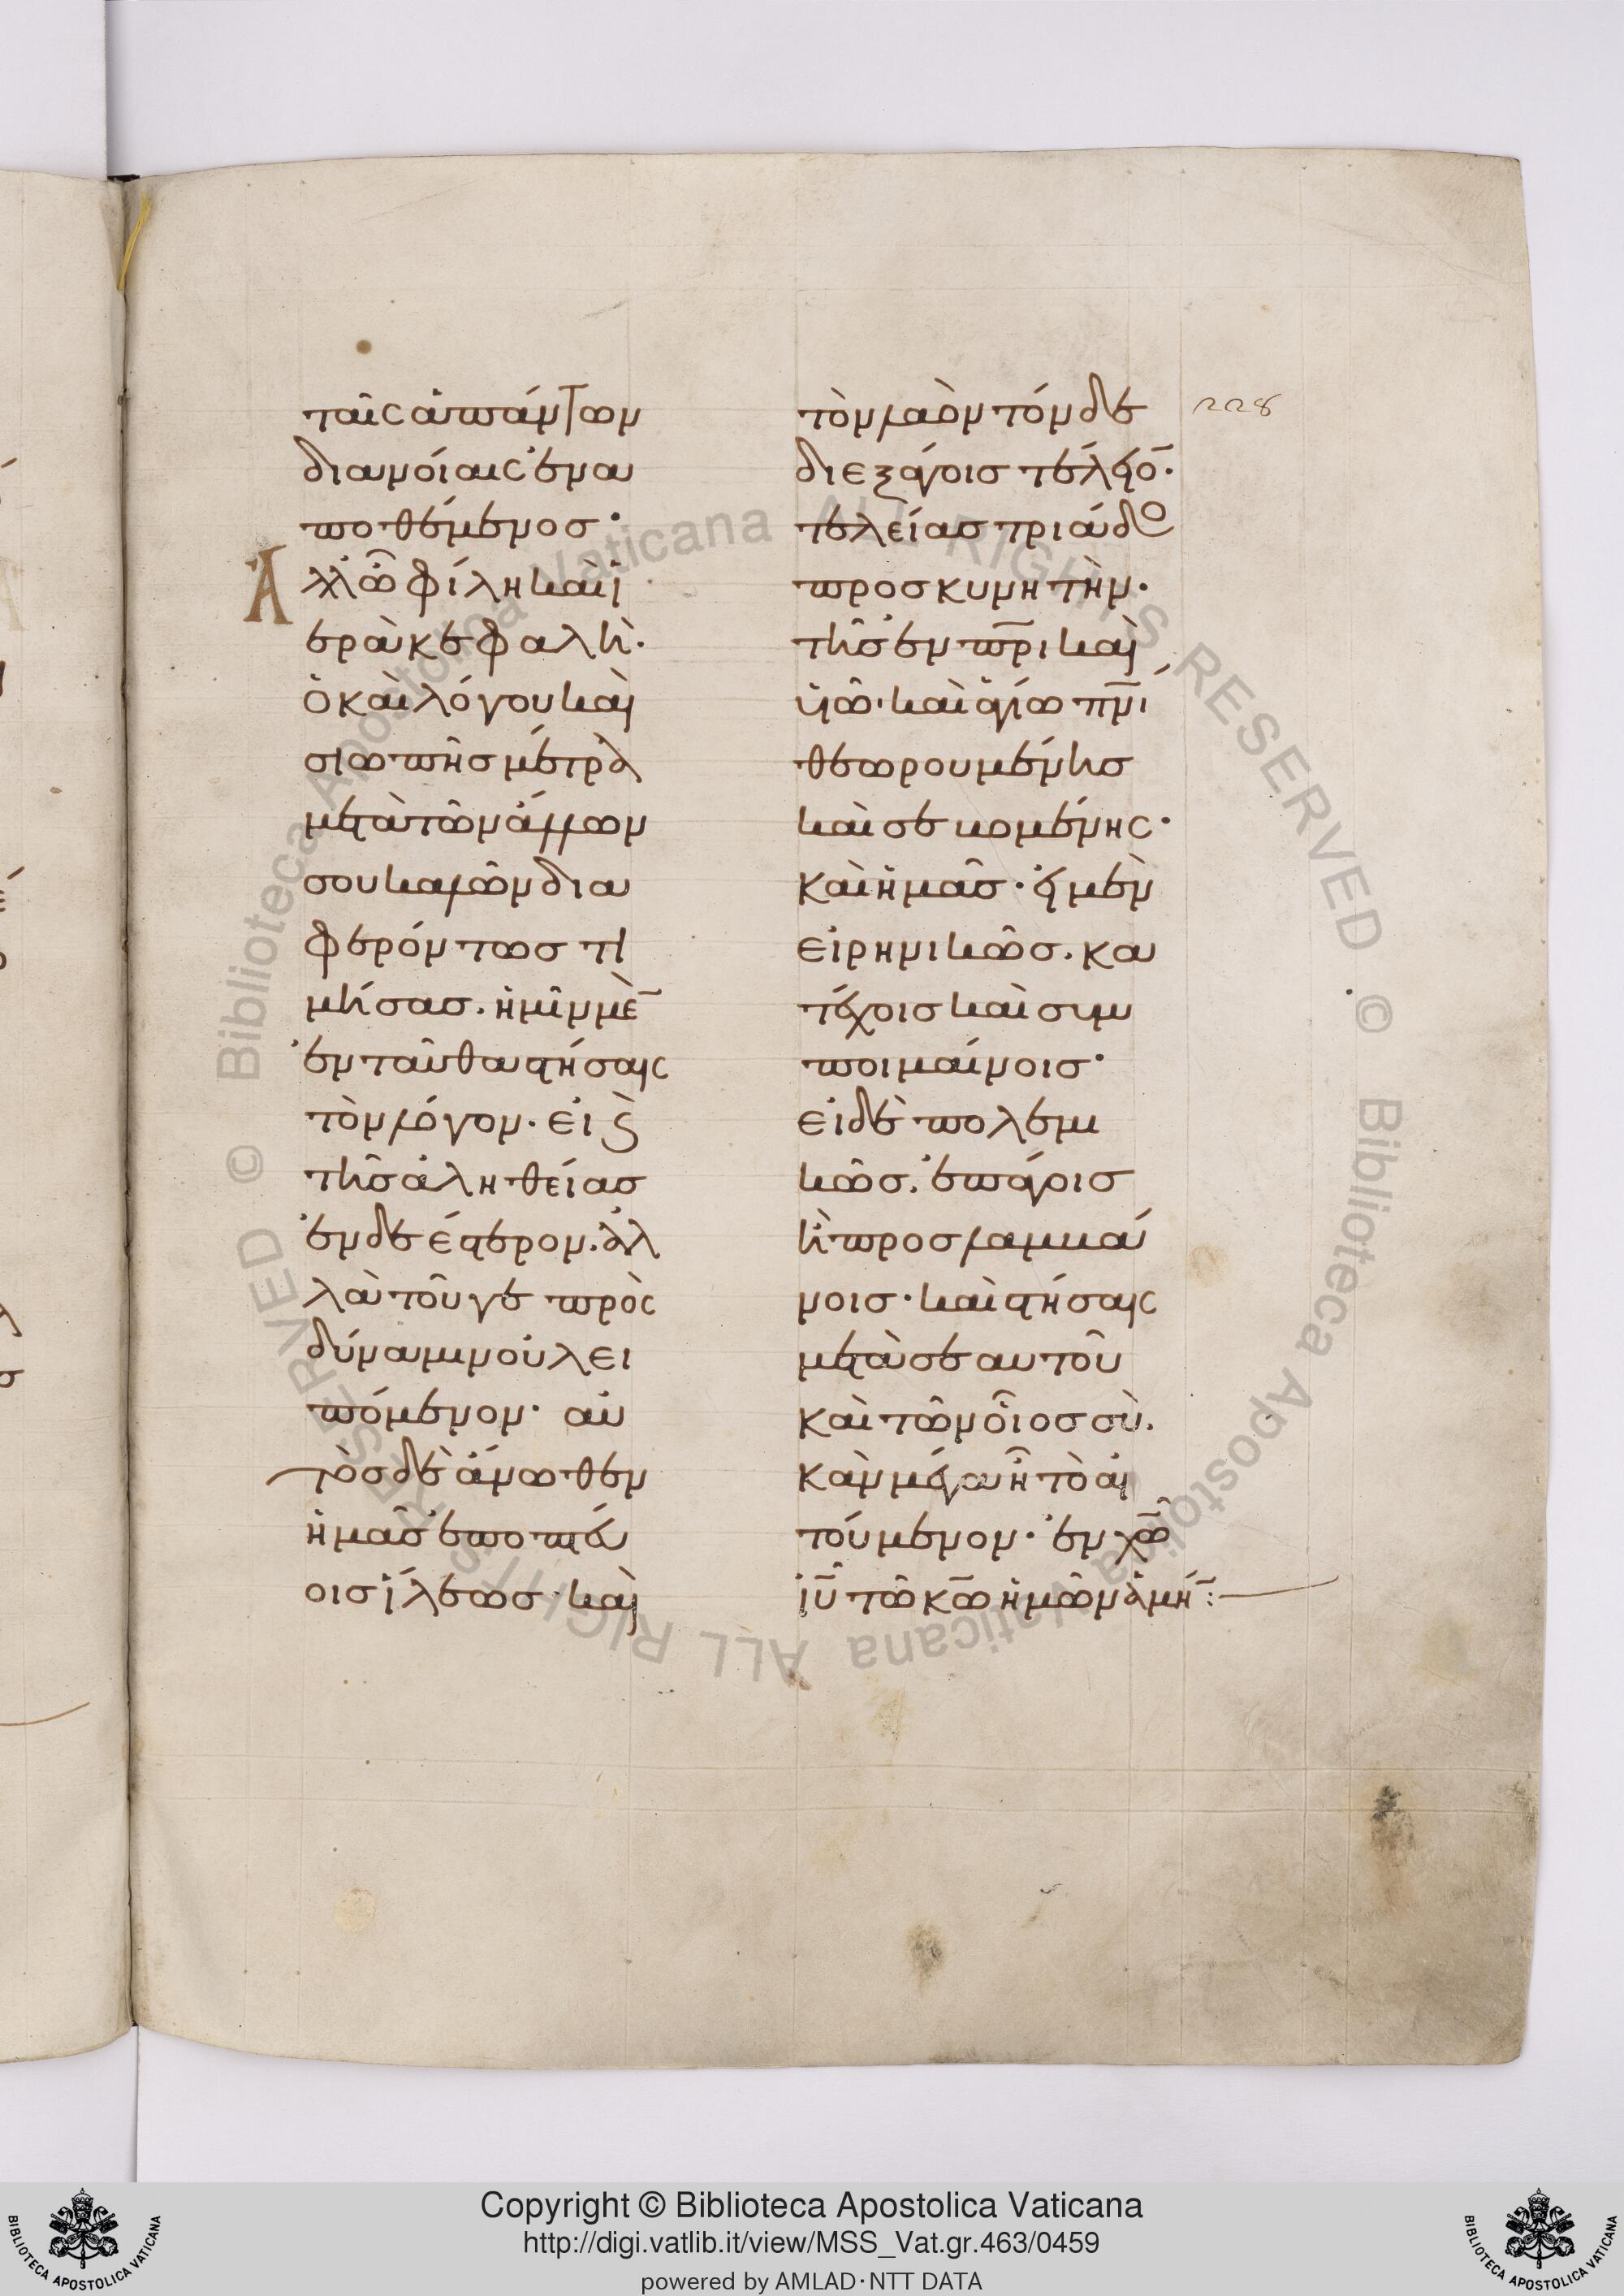 ταῖς ἁπάντων
διανοίαις ἐνα
ποθέμενος·
Ἀλλ' ὦ φίλη καὶ ἱ
ερὰ κεφαλὴ·
ὁ καὶ λόγου καὶ
σιωπῆς μέτρα
μετὰ τῶν ἄλλων
σου καλῶν δια
φερόντως τι
μήσας. ἡμῖν μὲ̄
ἐνταῦθα στήσαις
τὸν λόγον. εἰ καὶ
τῆς ἀληθείας
ἐνδεέστερον. ἀλ
λὰ τοῦ γε πρὸς
δύναμιν οὐ λει
πόμενον· αὐ
τὸς δὲ ἄνωθεν
ἡμᾶς ἐποπτεύ
οις ἵλεως· καὶ
τὸν λαὸν τόνδε
διεξάγοις τέλειο̄·
τελείας τριάδος
προσκυνητὴν·
τῆς ἐν π̅ρ̅ι καὶ
υἱῶ· καὶ ἁγίω π̅ν̅ι
θεωρουμένης
καὶ σεβομένης·
καὶ ἡμᾶς· εἰ μὲν
εἰρηνικῶς. κα
τέχοις καὶ συμ
ποιμαίνοις·
εἰ δὲ πολεμι
κῶς. ἐπάγοις
ἢ προσλαμβά
νοις· καὶ στήσαις
μετὰ σεαυτοῦ
καὶ τῶν οἷος σὺ.
κἂν μέγα ἦ τὸ αἰ
τούμενον· ἐν χ̅ω̅
ι̅υ̅ τῶ κ̅ω̅ ἡμῶν ἀμή̅:
228
Copyright © Biblioteca Apostolica Vaticana
http://digi.vatlib.it/view/MSS_Vat.gr.463/0459
powered by AMLAD·NTT DATA
BIBLIOTECA APOSTOLICA VATICANA
BIBLIOTECA APOSTOLICA VATICANA
© Biblioteca Apostolica Vaticana ALL RIGHTS RESERVED
© Biblioteca Apostolica Vaticana ALL RIGHTS RESERVED